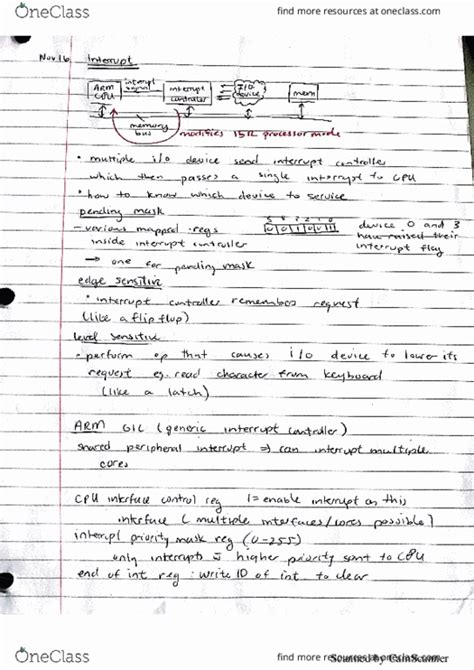 OneClass
find more resources at oneclass.com
Nov 16 Interrupt
ARM CPU interrupt signal interrupt controller I/O device mem
memory bus
modifies ISR processor mode
• multiple i/o device send interrupt controller
which then passes a single interrupt to CPU
• how to know which device to service
pending mask
- various mapped regs
inside interrupt controller
5 4 3 2 1 0
device 0 and 3
have raised their
interrupt flag
→ one for pending mask
edge sensitive
• interrupt controller remembers request
(like a flip flop)
level sensitive
• perform op that causes i/o device to lower its
request eg. read character from keyboard
(like a latch)
ARM GIC (generic interrupt controller)
shared peripheral interrupt ⇒ can interrupt multiple
cores
CPU interface control reg 1= enable interrupt on this
interface [multiple interfaces/cores possible]
interrupt priority mask reg (0-255)
only interrupts higher priority sent to CPU
end of int reg : write ID of int to clear
OneClass
find more resources at oneclass.com
Scanned by CamScanner